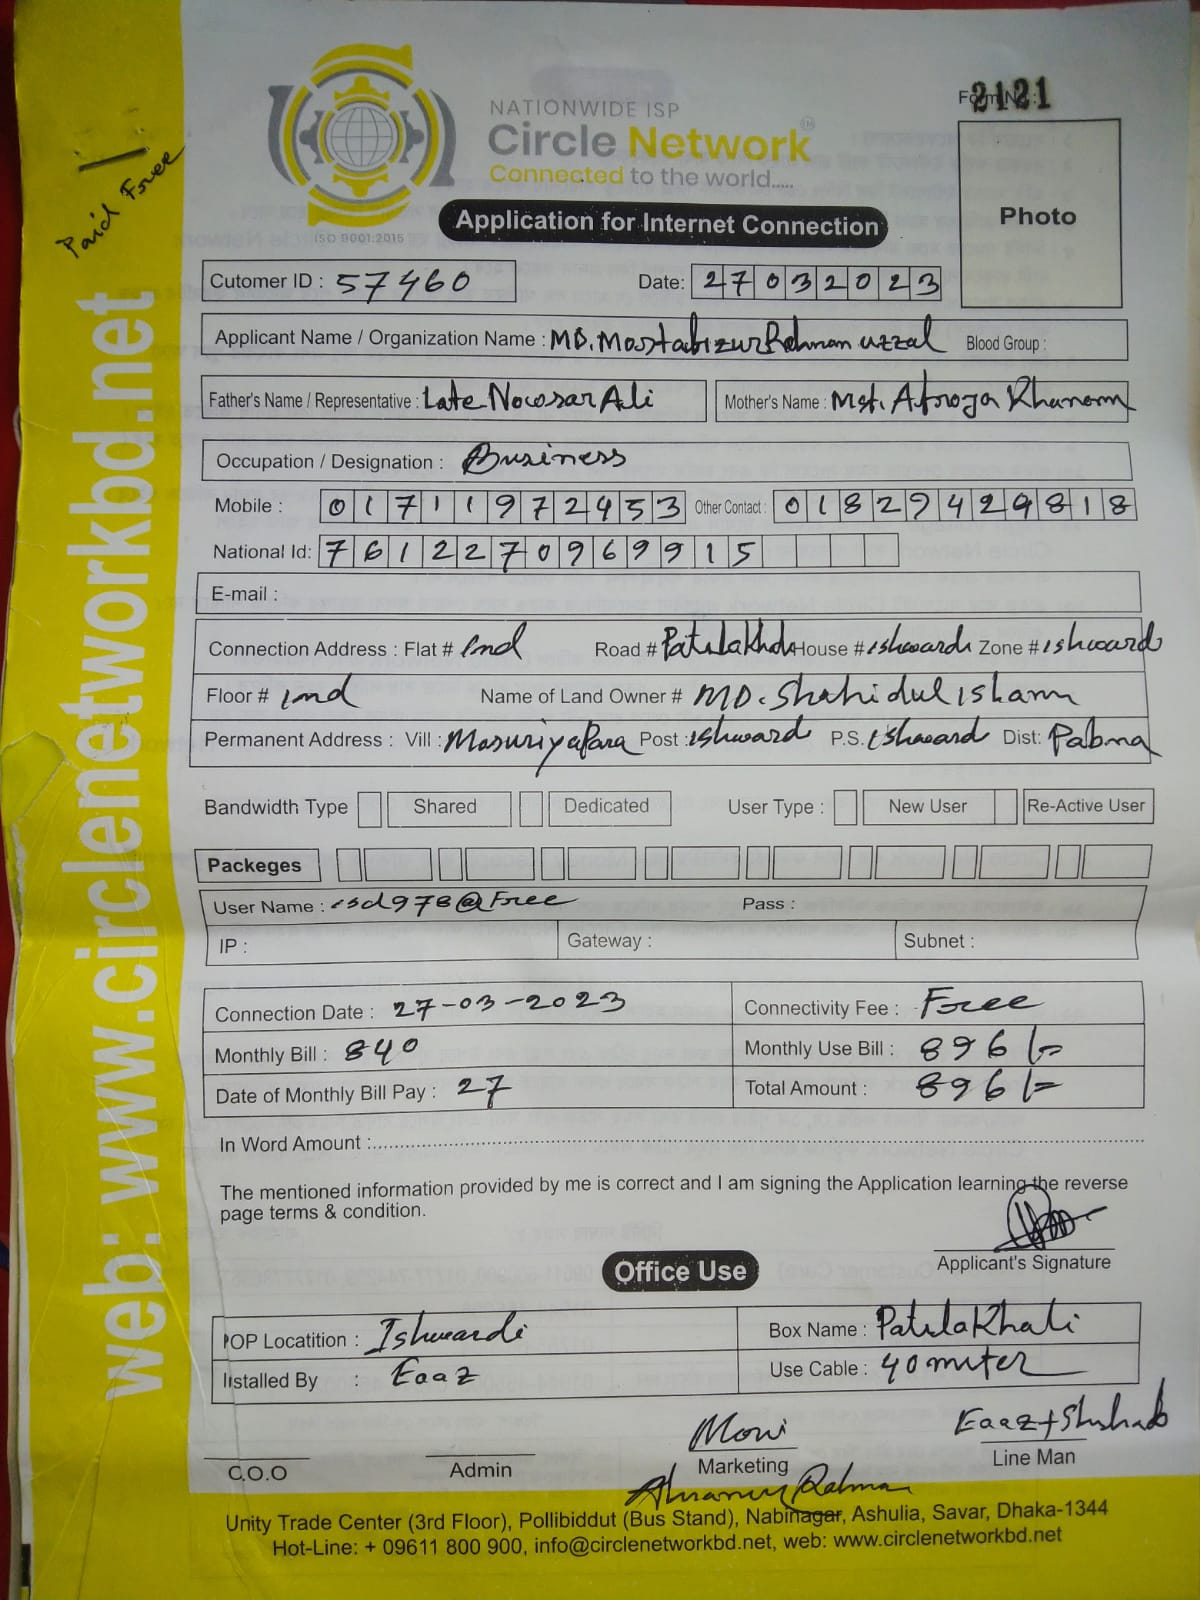 Paid Free
web: www.circlenetworkbd.net
NATIONWIDE ISP
Circle Network TM
Connected to the world.....
ISO 9001:2015
Form No : 2121
Photo
Application for Internet Connection
Cutomer ID : 57460 Date: 27032023
Applicant Name / Organization Name : MD. Mostafizur Rahman uzzal Blood Group :
Father's Name / Representative : Late Nowsar Ali Mother's Name : Mst. Afroja Khanom
Occupation / Designation : Business
Mobile : 01711972453 Other Contact : 01829429818
National Id: 7612270969915
E-mail :
Connection Address : Flat # 2nd Road # House # ishwardi Zone # ishward
Floor # 2nd Name of Land Owner # MD. Shahidul Islam
Permanent Address : Vill : Masuriyapara Post : ishward P.S. ishward Dist: Pabna
Bandwidth Type Shared Dedicated User Type : New User Re-Active User
Packeges
User Name : isd978@Free Pass :
IP : Gateway : Subnet :
Connection Date : 27-03-2023 Connectivity Fee : Free
Monthly Bill : 840 Monthly Use Bill : 896/=
Date of Monthly Bill Pay : 27 Total Amount : 896/=
In Word Amount :
The mentioned information provided by me is correct and I am signing the Application learning the reverse
page terms & condition.
Applicant's Signature
Office Use
POP Locatition : Ishwardi Box Name : Patilakhali
Installed By : Eaaz Use Cable : 40 miter
Moni Eaaz + Shihab
C.O.O Admin Marketing Line Man
Rahman
Unity Trade Center (3rd Floor), Pollibiddut (Bus Stand), Nabinagar, Ashulia, Savar, Dhaka-1344
Hot-Line: + 09611 800 900, info@circlenetworkbd.net, web: www.circlenetworkbd.net